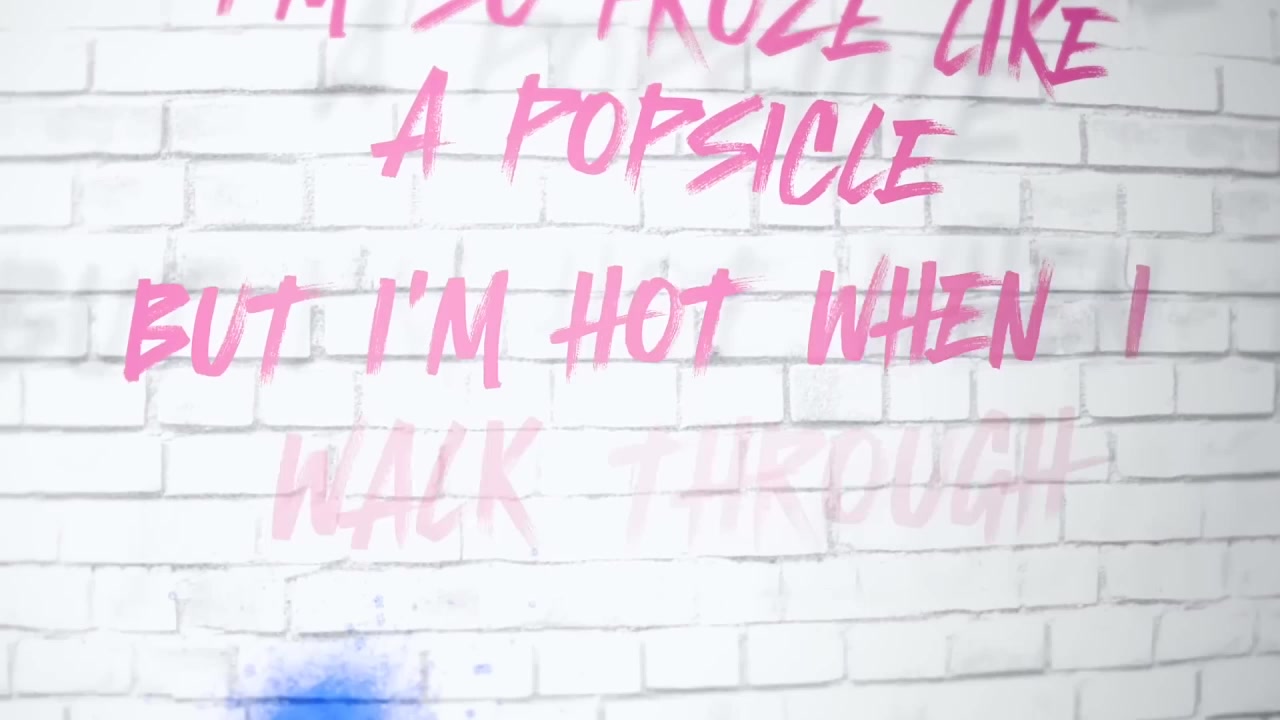 I'M SO FROZE LIKE
A POPSICLE
BUT I'M HOT WHEN I
WALK THROUGH